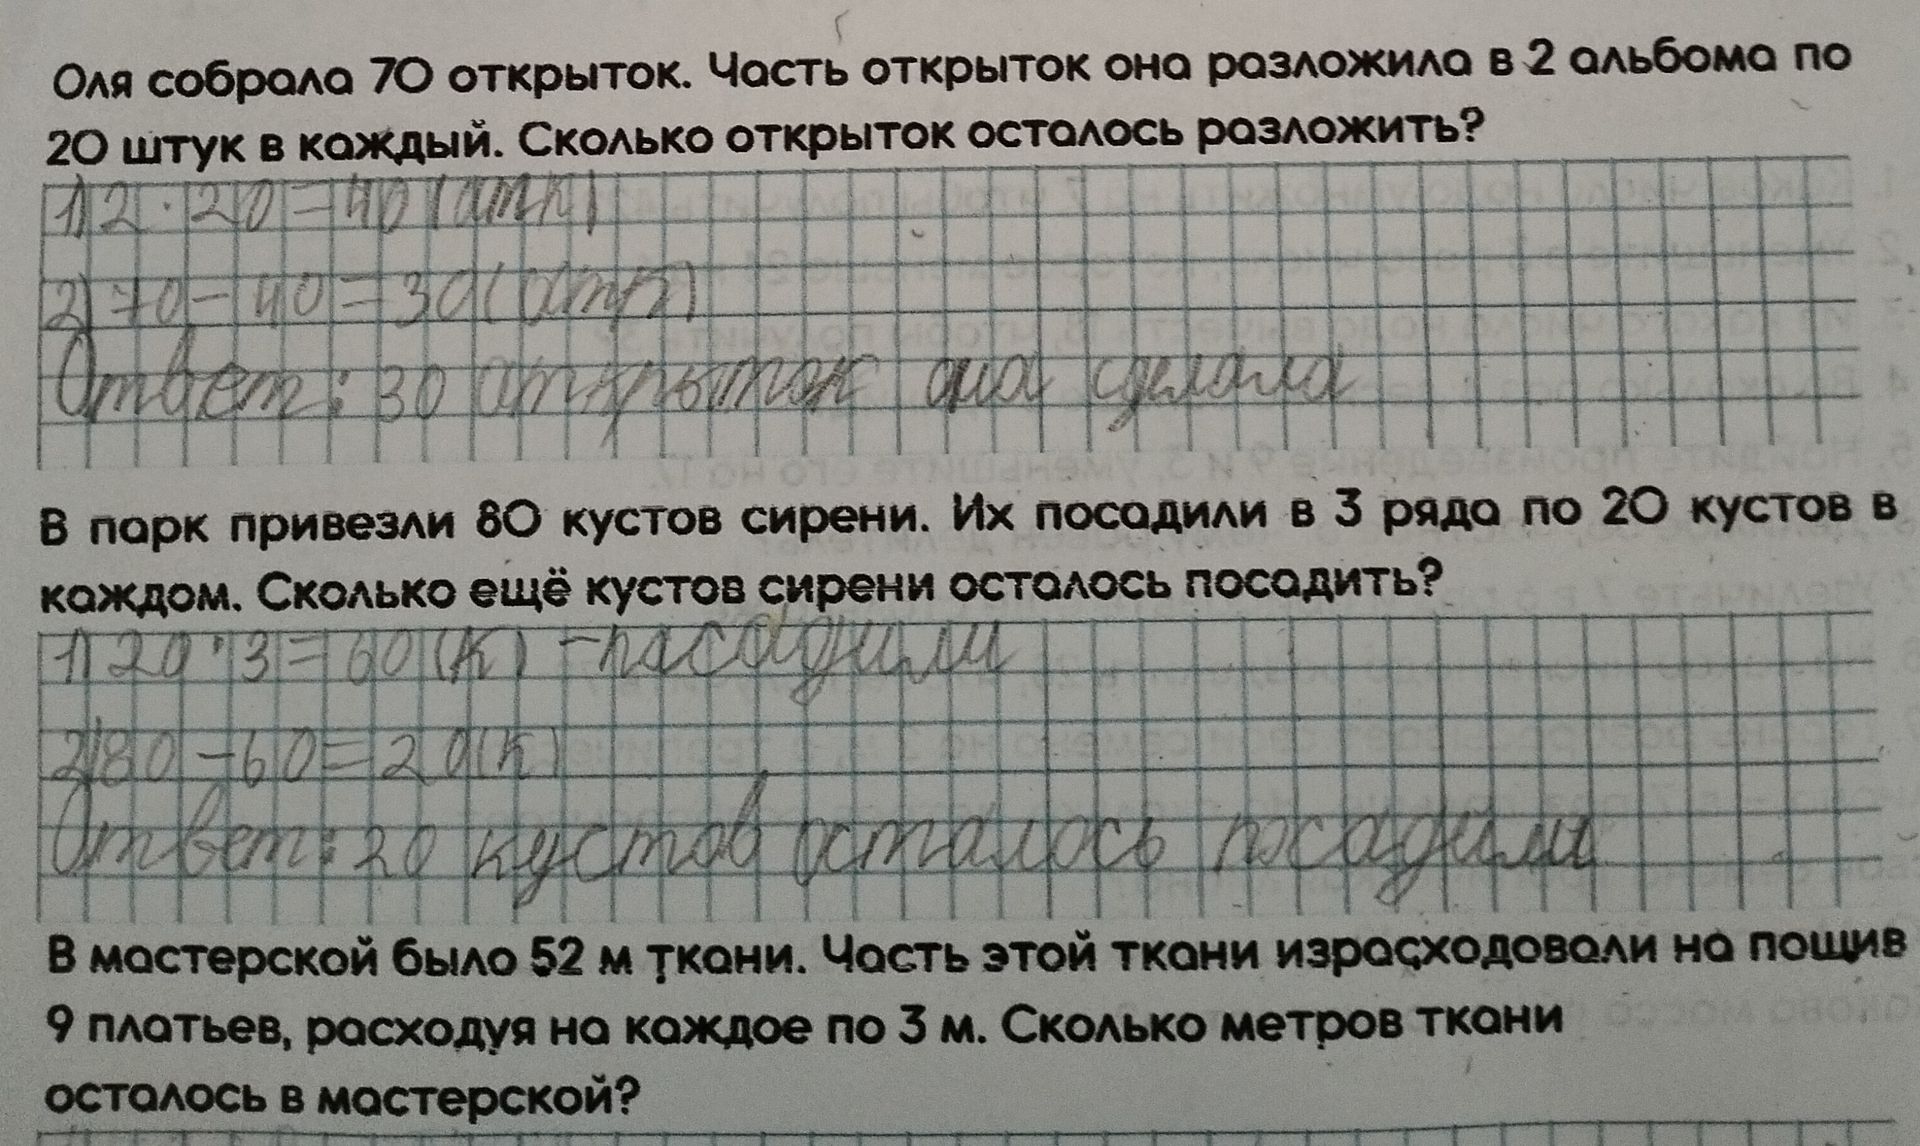 Оля собрала 70 открыток. Часть открыток она разложила в 2 альбома по
20 штук в каждый. Сколько открыток осталось разложить?
1) 2 · 20 = 40 (отк)
2) 70 - 40 = 30 (отк)
Ответ: 30 открыток она сделала
В парк привезли 80 кустов сирени. Их посадили в 3 ряда по 20 кустов в
каждом. Сколько ещё кустов сирени осталось посадить?
1) 20 · 3 = 60 (к) - пасадили
2) 80 - 60 = 20 (к)
Ответ: 20 кустов осталось посадили
В мастерской было 52 м ткани. Часть этой ткани израсходовали на пошив
9 платьев, расходуя на каждое по 3 м. Сколько метров ткани
осталось в мастерской?